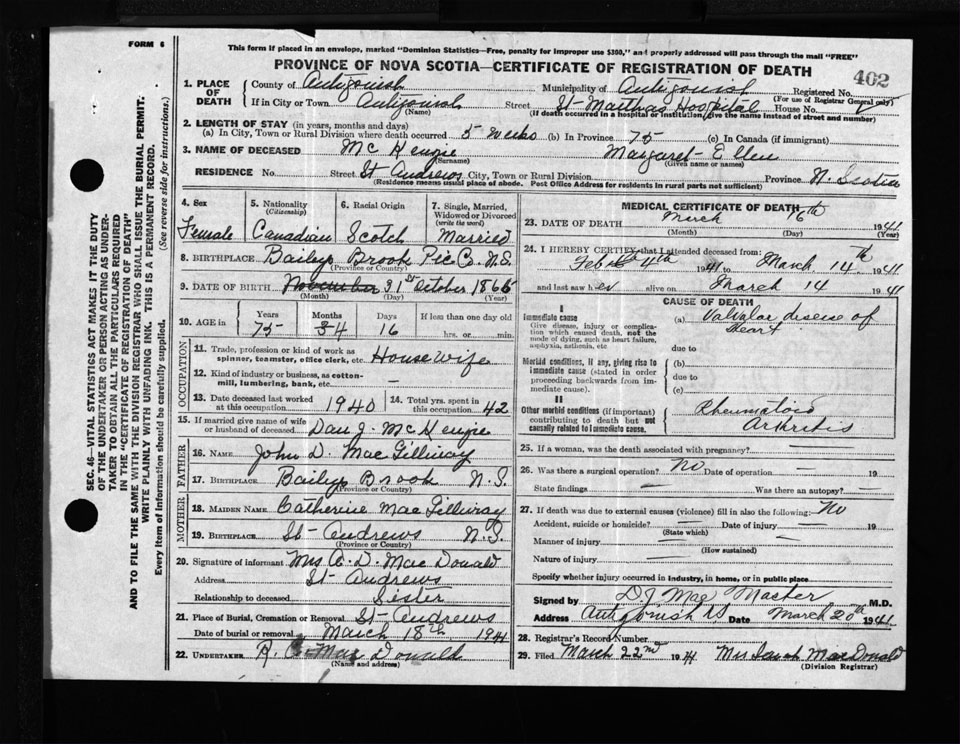 FORM 6
This form if placed in an envelope, marked "Dominion Statistics—Free, penalty for improper use $300," and properly addressed will pass through the mail "FREE"
PROVINCE OF NOVA SCOTIA—CERTIFICATE OF REGISTRATION OF DEATH
402
1. PLACE OF DEATH
County of Antigonish Municipality of Antigonish Registered No.
(For use of Registrar General only)
If in City or Town Antigonish Street St Marthas Hospital House No.
(Name) (If death occurred in a hospital or institution, give the name instead of street and number)
2. LENGTH OF STAY (in years, months and days)
(a) In City, Town or Rural Division where death occurred 5 weeks (b) In Province 75 (c) In Canada (if immigrant)
3. NAME OF DECEASED Mc Kenzie Margaret Ellen
(Surname) (Given name or names)
RESIDENCE No. Street St Andrews City, Town or Rural Division Province N. Scotia
(Residence means usual place of abode. Post Office Address for residents in rural parts not sufficient)
4. Sex Female
5. Nationality (Citizenship) Canadian
6. Racial Origin Scotch
7. Single, Married, Widowed or Divorced (write the word) Married
8. BIRTHPLACE Bailys Brook Pic Co. N.S.
(Province or Country)
9. DATE OF BIRTH November 31st October 1866
(Month) (Day) (Year)
10. AGE in Years Months Days If less than one day old
75 4 16 hrs. or min.
OCCUPATION
11. Trade, profession or kind of work as spinner, teamster, office clerk, etc. Housewife
12. Kind of industry or business, as cotton-mill, lumbering, bank, etc. —
13. Date deceased last worked at this occupation 1940
14. Total yrs. spent in this occupation 42
15. If married give name of wife or husband of deceased Dan J. McKenzie
FATHER
16. NAME John D. MacGillivray
17. BIRTHPLACE Bailys Brook N.S.
(Province or Country)
MOTHER
18. MAIDEN NAME Catherine MacGillivray
19. BIRTHPLACE St Andrews N.S.
(Province or Country)
20. Signature of informant Mrs A. D. MacDonald
Address St Andrews
Relationship to deceased Sister
21. Place of Burial, Cremation or Removal St Andrews
Date of burial or removal March 18th 1941
22. UNDERTAKER R. MacDonald
(Name and address)
MEDICAL CERTIFICATE OF DEATH
23. DATE OF DEATH March 16th 1941
(Month) (Day) (Year)
24. I HEREBY CERTIFY that I attended deceased from:
Feb 4th 1941 to March 14th 1941
and last saw her alive on March 14 1941
CAUSE OF DEATH
I
Immediate cause
Give disease, injury or complication which caused death, not the mode of dying, such as heart failure, asphyxia, asthenia, etc
(a) Valvular disease of
Heart
due to
Morbid conditions, if any, giving rise to immediate cause (stated in order proceeding backwards from immediate cause).
(b)
due to
(c)
II
Other morbid conditions (if important) contributing to death but not causally related to immediate cause.
Rheumatoid
Arthritis
25. If a woman, was the death associated with pregnancy? —
26. Was there a surgical operation? No Date of operation — 19
State findings — Was there an autopsy? —
27. If death was due to external causes (violence) fill in also the following: No
Accident, suicide or homicide? — Date of injury — 19
(State which)
Manner of injury —
(How sustained)
Nature of injury —
Specify whether injury occurred in industry, in home, or in public place
Signed by D J Mac Master M.D.
Address Antigonish NS Date March 20th 1941
28. Registrar's Record Number
29. Filed March 22nd 1941 Mrs Sarah MacDonald
(Division Registrar)
SEC. 46—VITAL STATISTICS ACT MAKES IT THE DUTY
OF THE UNDERTAKER OR PERSON ACTING AS UNDER-
TAKER TO OBTAIN ALL THE PARTICULARS REQUIRED
IN THE "CERTIFICATE OF REGISTRATION OF DEATH"
AND TO FILE THE SAME WITH THE DIVISION REGISTRAR WHO SHALL ISSUE THE BURIAL PERMIT.
WRITE PLAINLY WITH UNFADING INK. THIS IS A PERMANENT RECORD.
Every item of information should be carefully supplied.
(See reverse side for instructions.)